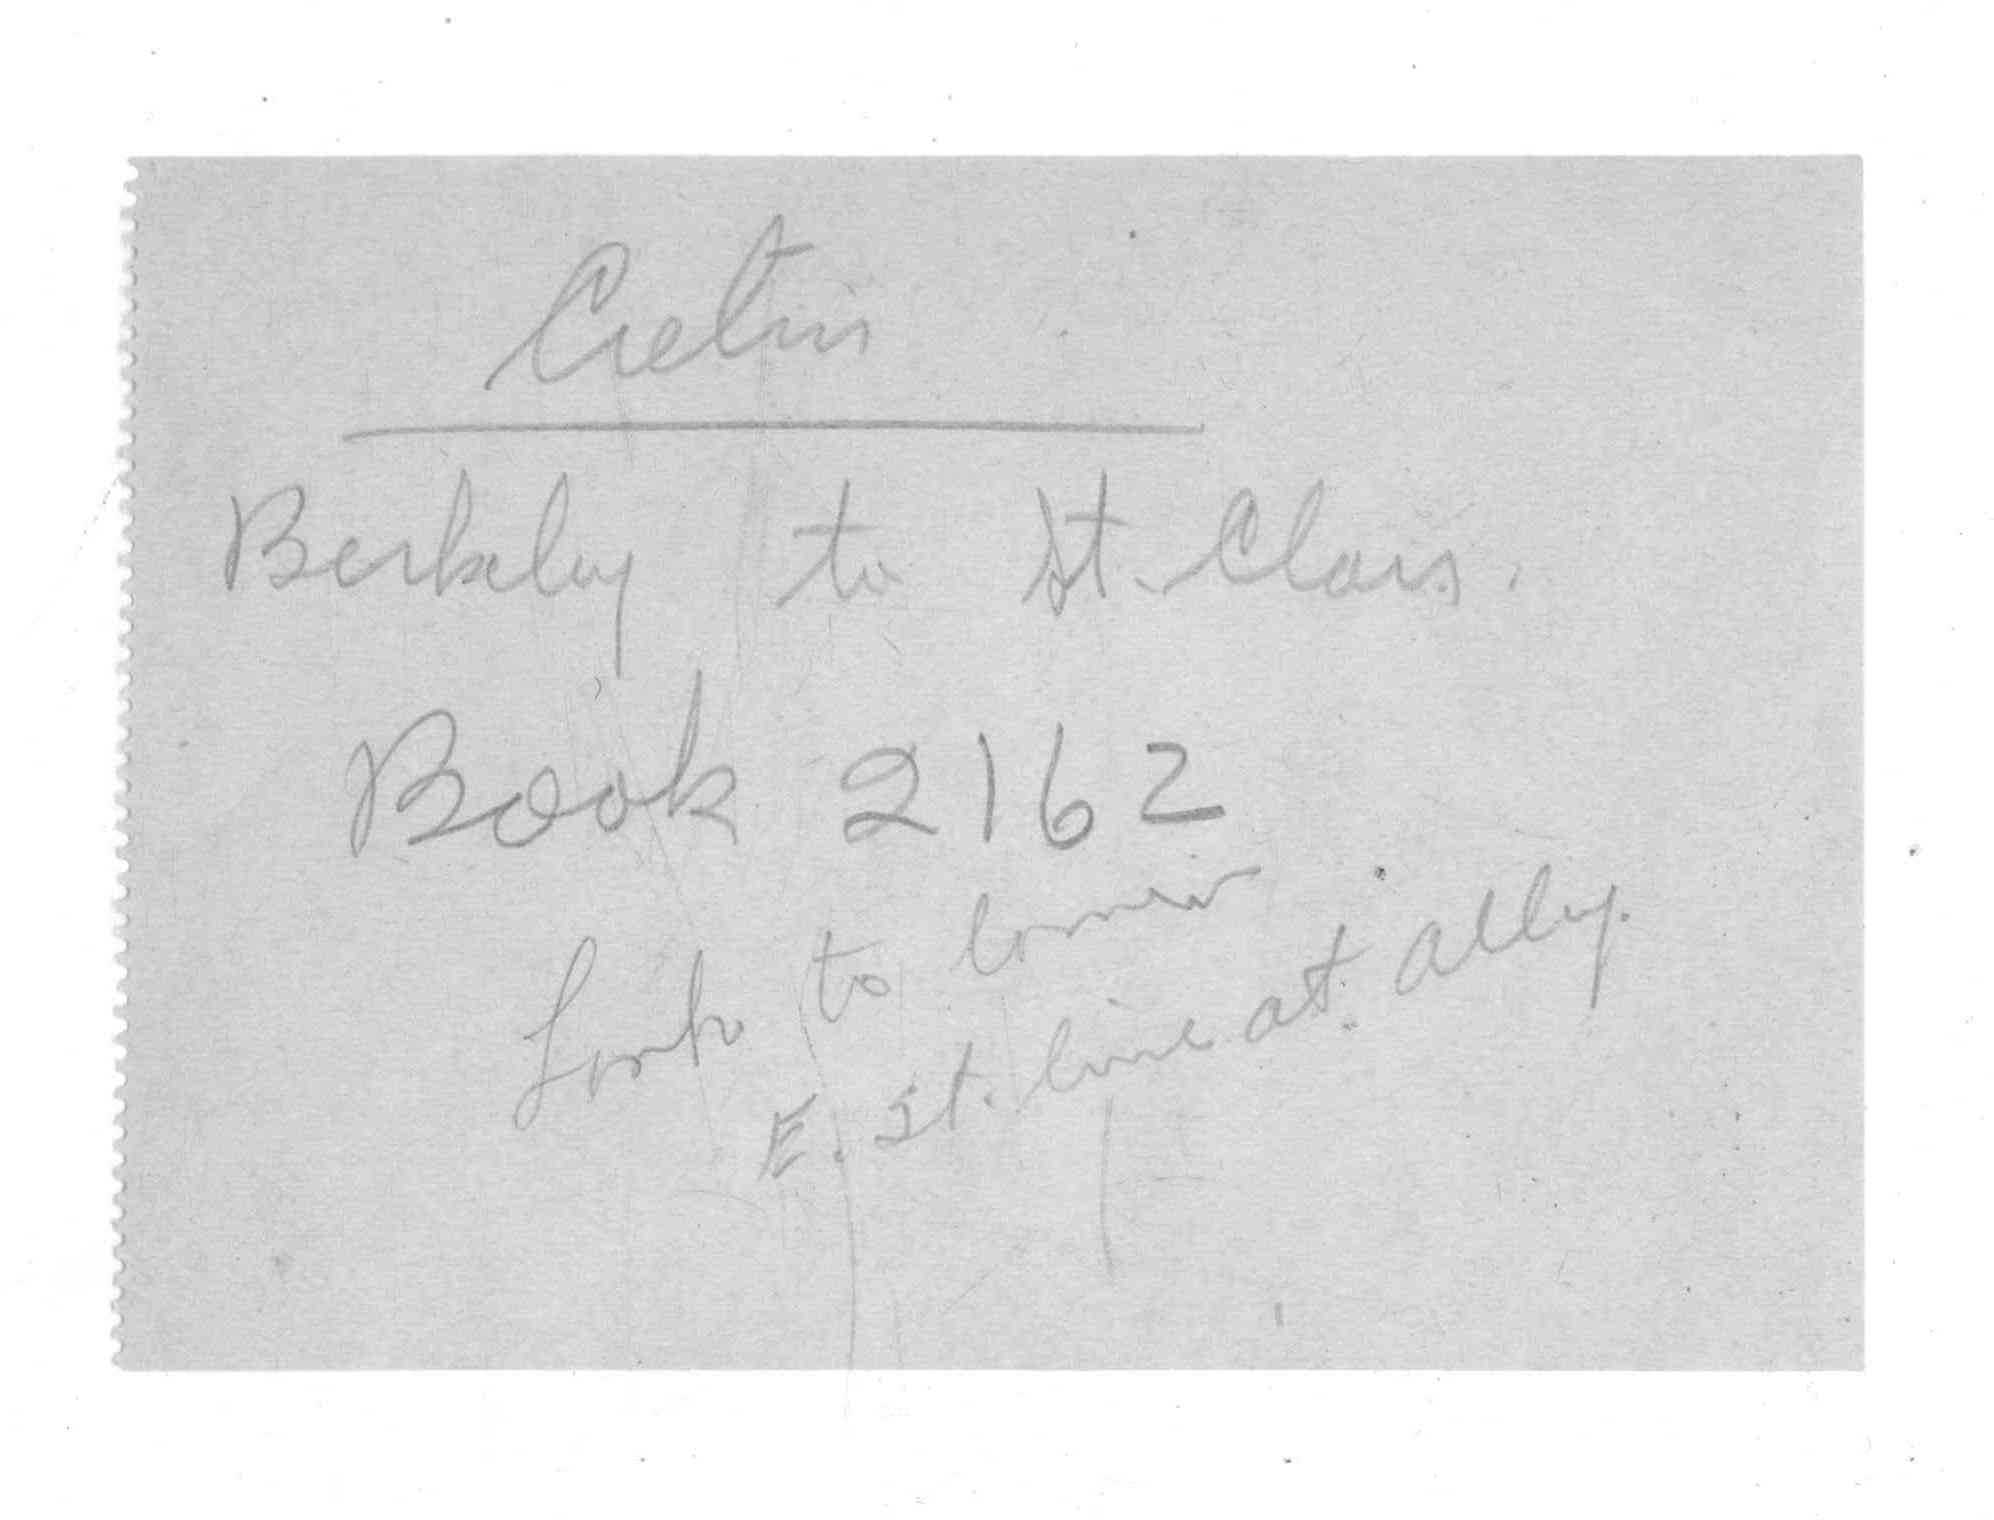 Cretin
Berkeley to St. Clair.
Book 2162
Look to corner
E. St. line at alley.